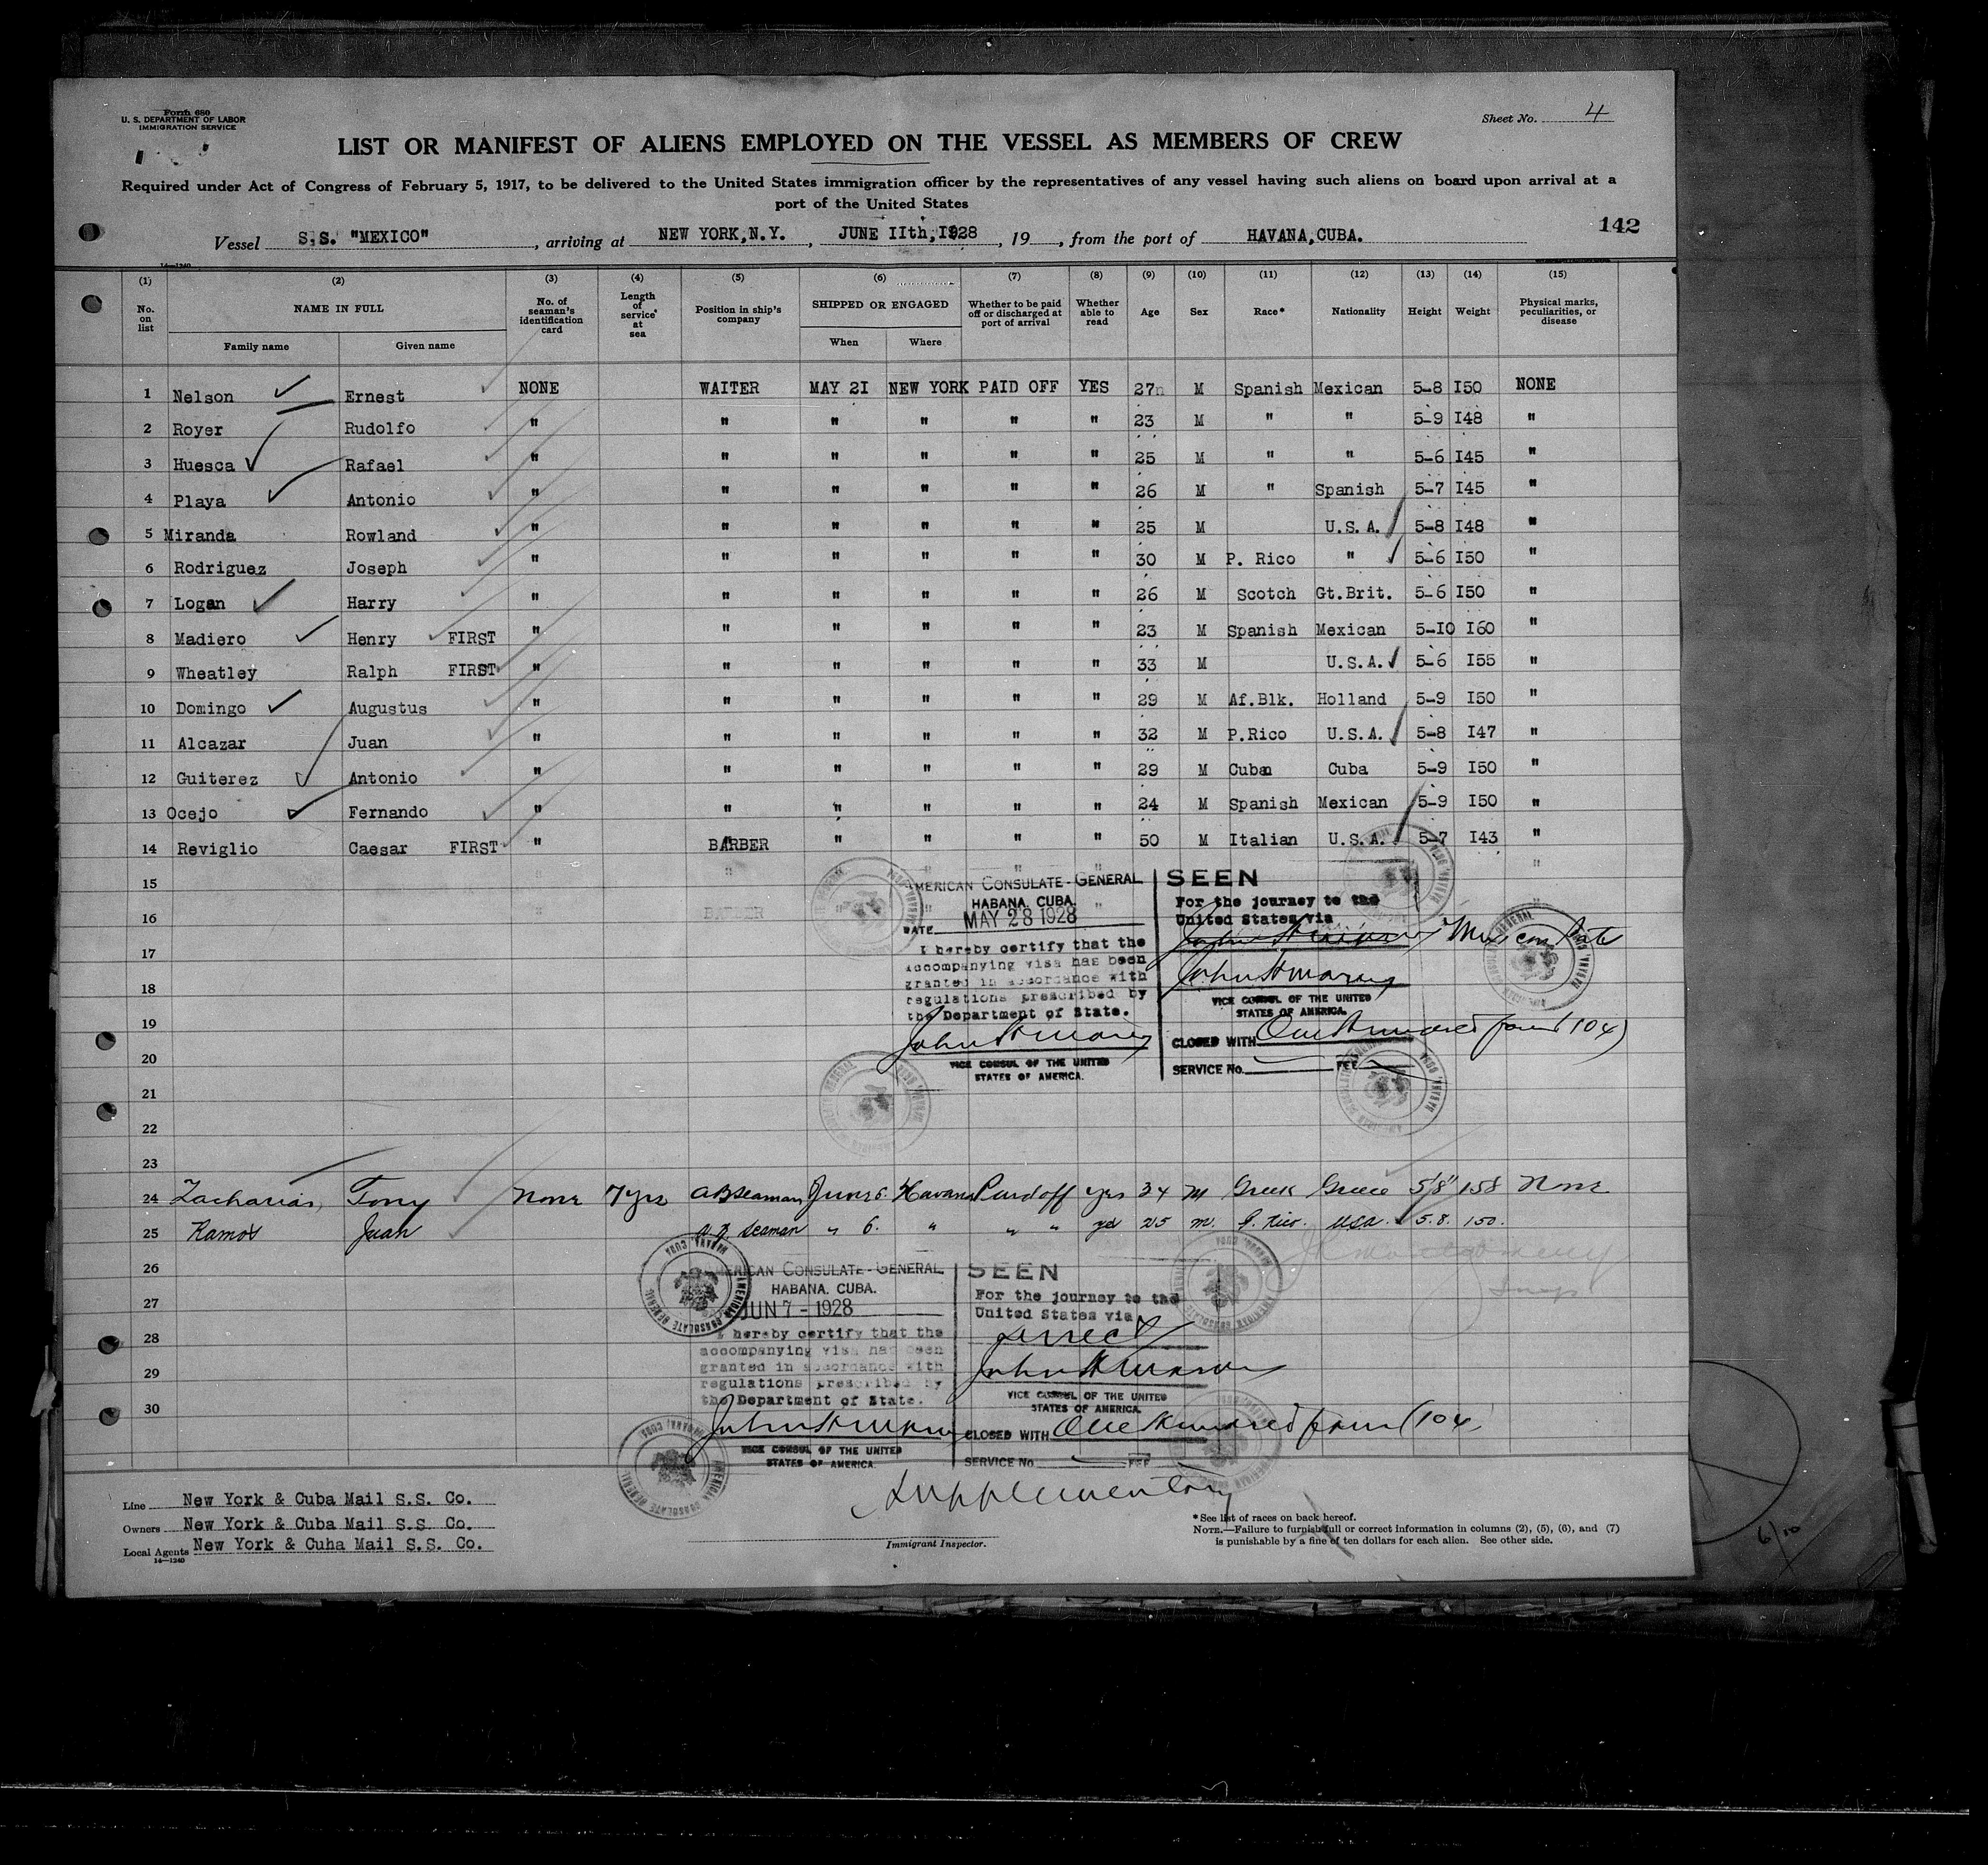 Form 680
U. S. DEPARTMENT OF LABOR
IMMIGRATION SERVICE
Sheet No. 4
LIST OR MANIFEST OF ALIENS EMPLOYED ON THE VESSEL AS MEMBERS OF CREW
Required under Act of Congress of February 5, 1917, to be delivered to the United States immigration officer by the representatives of any vessel having such aliens on board upon arrival at a
port of the United States
142
Vessel S.S. "MEXICO" , arriving at NEW YORK, N.Y. , JUNE IIth, I928 , 19 , from the port of HAVANA, CUBA.
14—1240
(1) (2) (3) (4) (5) (6) (7) (8) (9) (10) (11) (12) (13) (14) (15)
No. on list NAME IN FULL Family name Given name No. of seaman's identification card Length of service at sea Position in ship's company SHIPPED OR ENGAGED When Where Whether to be paid off or discharged at port of arrival Whether able to read Age Sex Race* Nationality Height Weight Physical marks, peculiarities, or disease
1 Nelson Ernest NONE WAITER MAY 2I NEW YORK PAID OFF YES 27 M Spanish Mexican 5-8 I50 NONE
2 Royer Rudolfo " " " " " " 23 M " " 5-9 I48 "
3 Huesca Rafael " " " " " " 25 M " " 5-6 I45 "
4 Playa Antonio " " " " " " 26 M " Spanish 5-7 I45 "
5 Miranda Rowland " " " " " " 25 M U.S.A. 5-8 I48 "
6 Rodriguez Joseph " " " " " " 30 M P. Rico " 5-6 I50 "
7 Logan Harry " " " " " " 26 M Scotch Gt.Brit. 5-6 I50 "
8 Madiero Henry FIRST " " " " " " 23 M Spanish Mexican 5-I0 I60 "
9 Wheatley Ralph FIRST " " " " " " 33 M U.S.A. 5-6 I55 "
10 Domingo Augustus " " " " " " 29 M Af.Blk. Holland 5-9 I50 "
11 Alcazar Juan " " " " " " 32 M P.Rico U.S.A. 5-8 I47 "
12 Guiterez Antonio " " " " " " 29 M Cuban Cuba 5-9 I50 "
13 Ocejo Fernando " " " " " " 24 M Spanish Mexican 5-9 I50 "
14 Reviglio Caesar FIRST " BARBER " " " " 50 M Italian U.S.A. 5-7 I43 "
15
16
17
18
19
20
21
22
23
AMERICAN CONSULATE-GENERAL
HABANA, CUBA.
DATE MAY 28 1928
I hereby certify that the
accompanying visa has been
granted in accordance with
regulations prescribed by
the Department of State.
VICE CONSUL OF THE UNITED
STATES OF AMERICA.
SEEN
For the journey to the
United States via
VICE CONSUL OF THE UNITED
STATES OF AMERICA.
CLOSED WITH One Hundred four (104)
SERVICE No. FEE
24 Zacharias, Tony None 7 yrs AB Seaman June 6. Havana Paid off yes 34 M Greek Greece 5'8" 158 None
25 Ramos Juan A.B. Seaman " 6. " " " yes 25 m. P. Rico. USA. 5.8. 150.
26
27
28
29
30
AMERICAN CONSULATE-GENERAL
HABANA, CUBA.
JUN 7 - 1928
I hereby certify that the
accompanying visa has been
granted in accordance with
regulations prescribed by
the Department of State.
VICE CONSUL OF THE UNITED
STATES OF AMERICA.
SEEN
For the journey to the
United States via
direct
VICE CONSUL OF THE UNITED
STATES OF AMERICA.
CLOSED WITH One Hundred four (104)
SERVICE No. FEE
Supplementary
Line New York & Cuba Mail S.S. Co.
Owners New York & Cuba Mail S.S. Co.
Local Agents New York & Cuba Mail S.S. Co.
14—1240
Immigrant Inspector.
*See list of races on back hereof.
NOTE.—Failure to furnish full or correct information in columns (2), (5), (6), and (7)
is punishable by a fine of ten dollars for each alien. See other side.
6/10